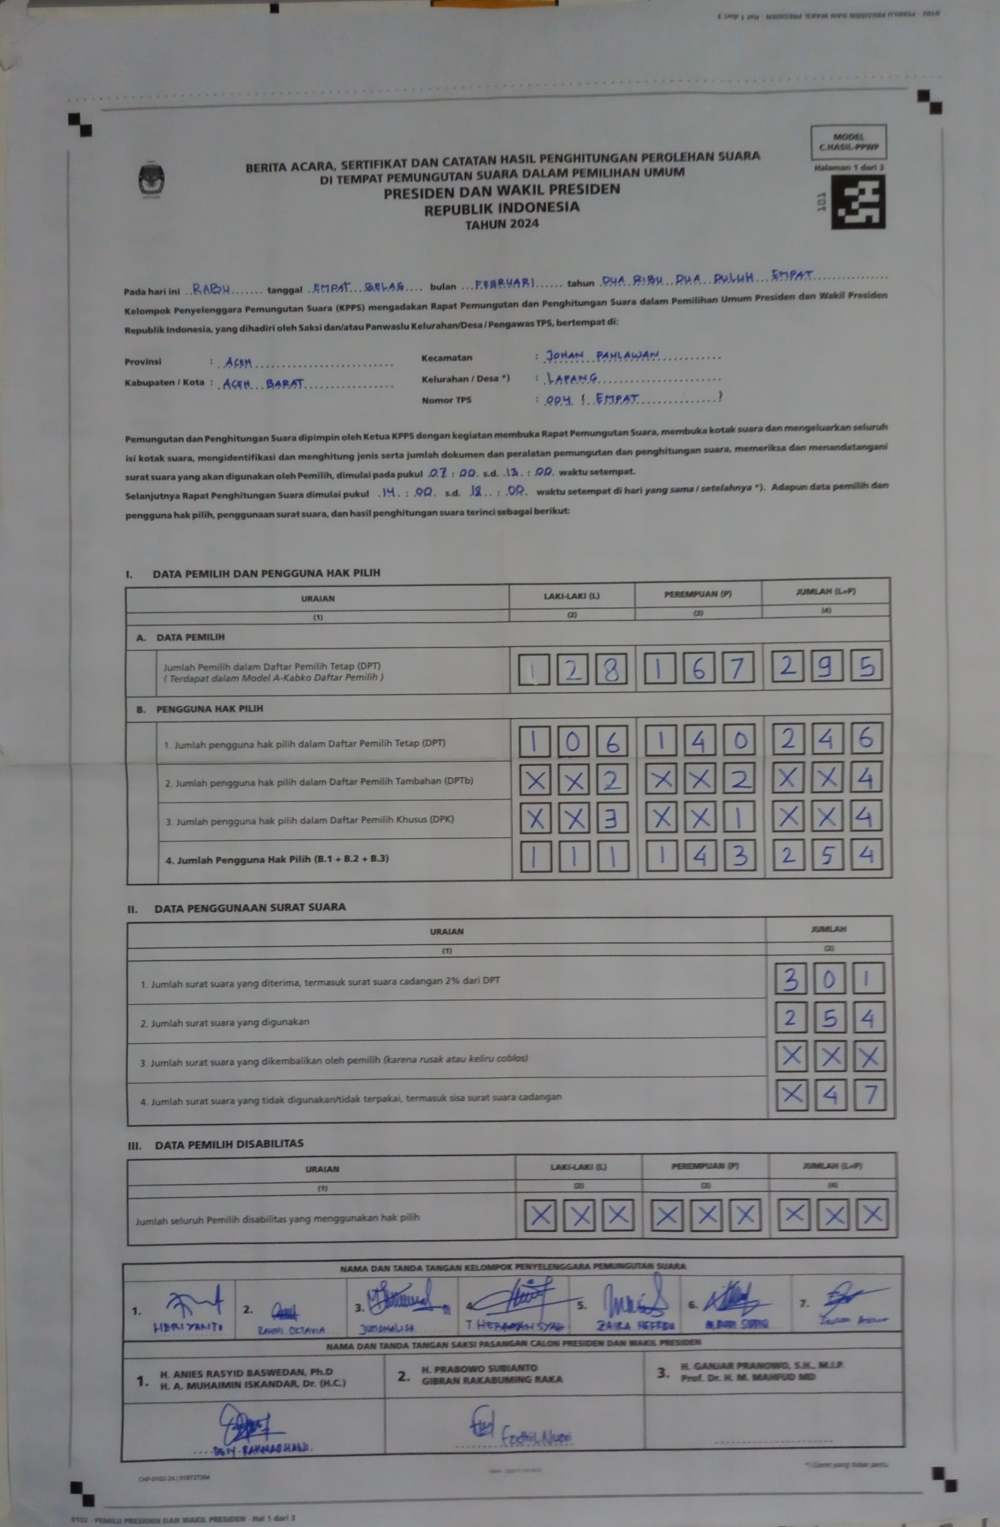 MODEL
C.HASIL-PPWP
Halaman 1 dari 3
101
BERITA ACARA, SERTIFIKAT DAN CATATAN HASIL PENGHITUNGAN PEROLEHAN SUARA
DI TEMPAT PEMUNGUTAN SUARA DALAM PEMILIHAN UMUM
PRESIDEN DAN WAKIL PRESIDEN
REPUBLIK INDONESIA
TAHUN 2024
Pada hari ini RABU tanggal EMPAT BELAS bulan FEBRUARI tahun DUA RIBU DUA PULUH EMPAT
Kelompok Penyelenggara Pemungutan Suara (KPPS) mengadakan Rapat Pemungutan dan Penghitungan Suara dalam Pemilihan Umum Presiden dan Wakil Presiden
Republik Indonesia, yang dihadiri oleh Saksi dan/atau Panwaslu Kelurahan/Desa / Pengawas TPS, bertempat di:
Provinsi : ACEH Kecamatan : JOHAN PAHLAWAN
Kabupaten / Kota : ACEH BARAT Kelurahan / Desa *) : LAPANG
Nomor TPS : 004 ( EMPAT )
Pemungutan dan Penghitungan Suara dipimpin oleh Ketua KPPS dengan kegiatan membuka Rapat Pemungutan Suara, membuka kotak suara dan mengeluarkan seluruh
isi kotak suara, mengidentifikasi dan menghitung jenis serta jumlah dokumen dan peralatan pemungutan dan penghitungan suara, memeriksa dan menandatangani
surat suara yang akan digunakan oleh Pemilih, dimulai pada pukul 07 : 00 s.d. 13 : 00 waktu setempat.
Selanjutnya Rapat Penghitungan Suara dimulai pukul 14 : 00 s.d. 18 : 00 waktu setempat di hari yang sama / setelahnya *). Adapun data pemilih dan
pengguna hak pilih, penggunaan surat suara, dan hasil penghitungan suara terinci sebagai berikut:
I. DATA PEMILIH DAN PENGGUNA HAK PILIH
URAIAN LAKI-LAKI (L) PEREMPUAN (P) JUMLAH (L+P)
(1) (2) (3) (4)
A. DATA PEMILIH
Jumlah Pemilih dalam Daftar Pemilih Tetap (DPT) 1 2 8 1 6 7 2 9 5
( Terdapat dalam Model A-Kabko Daftar Pemilih )
B. PENGGUNA HAK PILIH
1. Jumlah pengguna hak pilih dalam Daftar Pemilih Tetap (DPT) 1 0 6 1 4 0 2 4 6
2. Jumlah pengguna hak pilih dalam Daftar Pemilih Tambahan (DPTb) X X 2 X X 2 X X 4
3. Jumlah pengguna hak pilih dalam Daftar Pemilih Khusus (DPK) X X 3 X X 1 X X 4
4. Jumlah Pengguna Hak Pilih (B.1 + B.2 + B.3) 1 1 1 1 4 3 2 5 4
II. DATA PENGGUNAAN SURAT SUARA
URAIAN JUMLAH
(1) (2)
1. Jumlah surat suara yang diterima, termasuk surat suara cadangan 2% dari DPT 3 0 1
2. Jumlah surat suara yang digunakan 2 5 4
3. Jumlah surat suara yang dikembalikan oleh pemilih (karena rusak atau keliru coblos) X X X
4. Jumlah surat suara yang tidak digunakan/tidak terpakai, termasuk sisa surat suara cadangan X 4 7
III. DATA PEMILIH DISABILITAS
URAIAN LAKI-LAKI (L) PEREMPUAN (P) JUMLAH (L+P)
(1) (2) (3) (4)
Jumlah seluruh Pemilih disabilitas yang menggunakan hak pilih X X X X X X X X X
NAMA DAN TANDA TANGAN KELOMPOK PENYELENGGARA PEMUNGUTAN SUARA
1. 2. 3. 4. 5. 6. 7.
HERIYANTO
NAMA DAN TANDA TANGAN SAKSI PASANGAN CALON PRESIDEN DAN WAKIL PRESIDEN
1. H. ANIES RASYID BASWEDAN, Ph.D
H. A. MUHAIMIN ISKANDAR, Dr. (H.C.)
2. H. PRABOWO SUBIANTO
GIBRAN RAKABUMING RAKA
3. H. GANJAR PRANOWO, S.H., M.I.P.
Prof. Dr. H. M. MAHFUD MD
*) Coret yang tidak perlu
0102 - PEMILU PRESIDEN DAN WAKIL PRESIDEN - Hal 1 dari 3